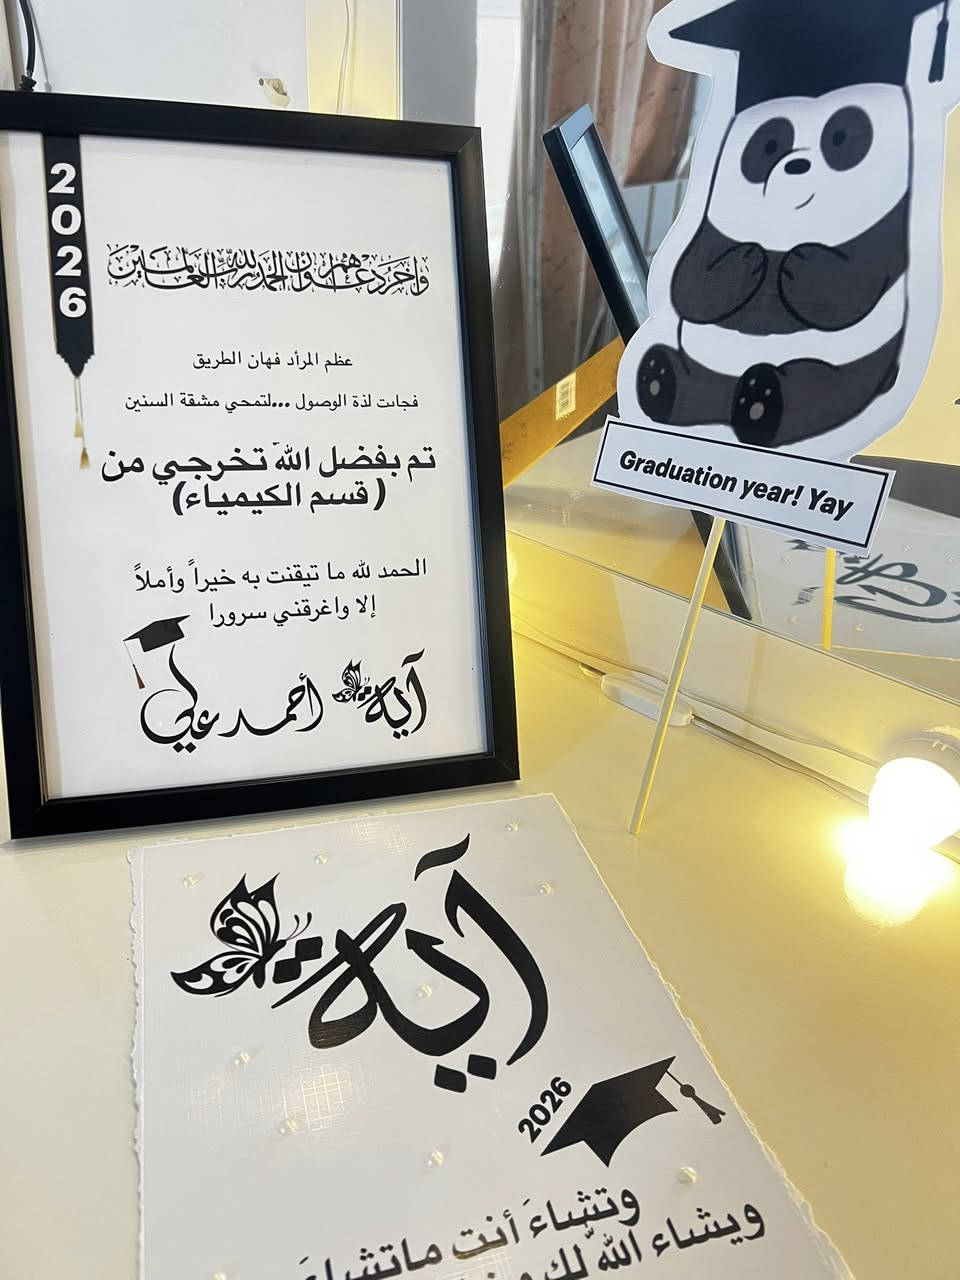 2026
وآخر دعواهم أن الحمد لله رب العالمين
عظم المرأد فهان الطريق
فجاىت لذة الوصول ...لتمحي مشقة السنين
تم بفضل الله تخرجي من
(قسم الكيمياء)
الحمد لله ما تيقنت به خيراً وأملاً
إلا واغرقني سرورا
آية أحمد علي
Graduation year! Yay
آية
2026
وتشاءَ أنت ماتشاءَ
ويشاء اللّٰه لك